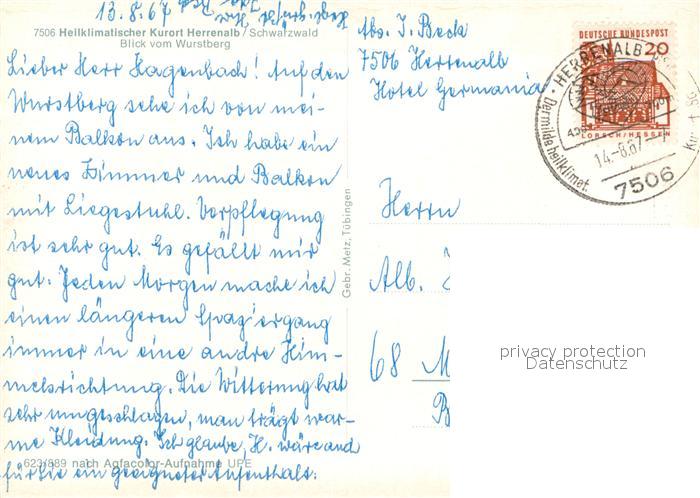 13.8.67
7506 Heilklimatischer Kurort Herrenalb / Schwarzwald
Blick vom Wurstberg
Lieber Herr Hagenbach! Auf den
Wurstberg sehe ich von mei-
nem Balkon aus. Ich habe ein
neues Zimmer und Balkon
mit Liegestuhl. Verpflegung
ist sehr gut. Es gefällt mir
gut. Jeden Morgen mache ich
einen längeren Spaziergang
immer in eine andre Him-
melsrichtung. Die Witterung hat
sehr umgeschlagen, man trägt war-
me Kleidung. Ich glaube, H. wäre and
für Sie ein geeigneter Aufenthalt.
623/889 nach Agfacolor-Aufnahme UPE
Gebr. Metz, Tübingen
Abs. I. Beck
7506 Herrenalb
Hotel Germania
DEUTSCHE BUNDESPOST
20
LORSCH/HESSEN
HERRENALB
Der milde heilklimat.
14.-8.67
7506
Herrn
Alb.
68 M
B
privacy protection
Datenschutz